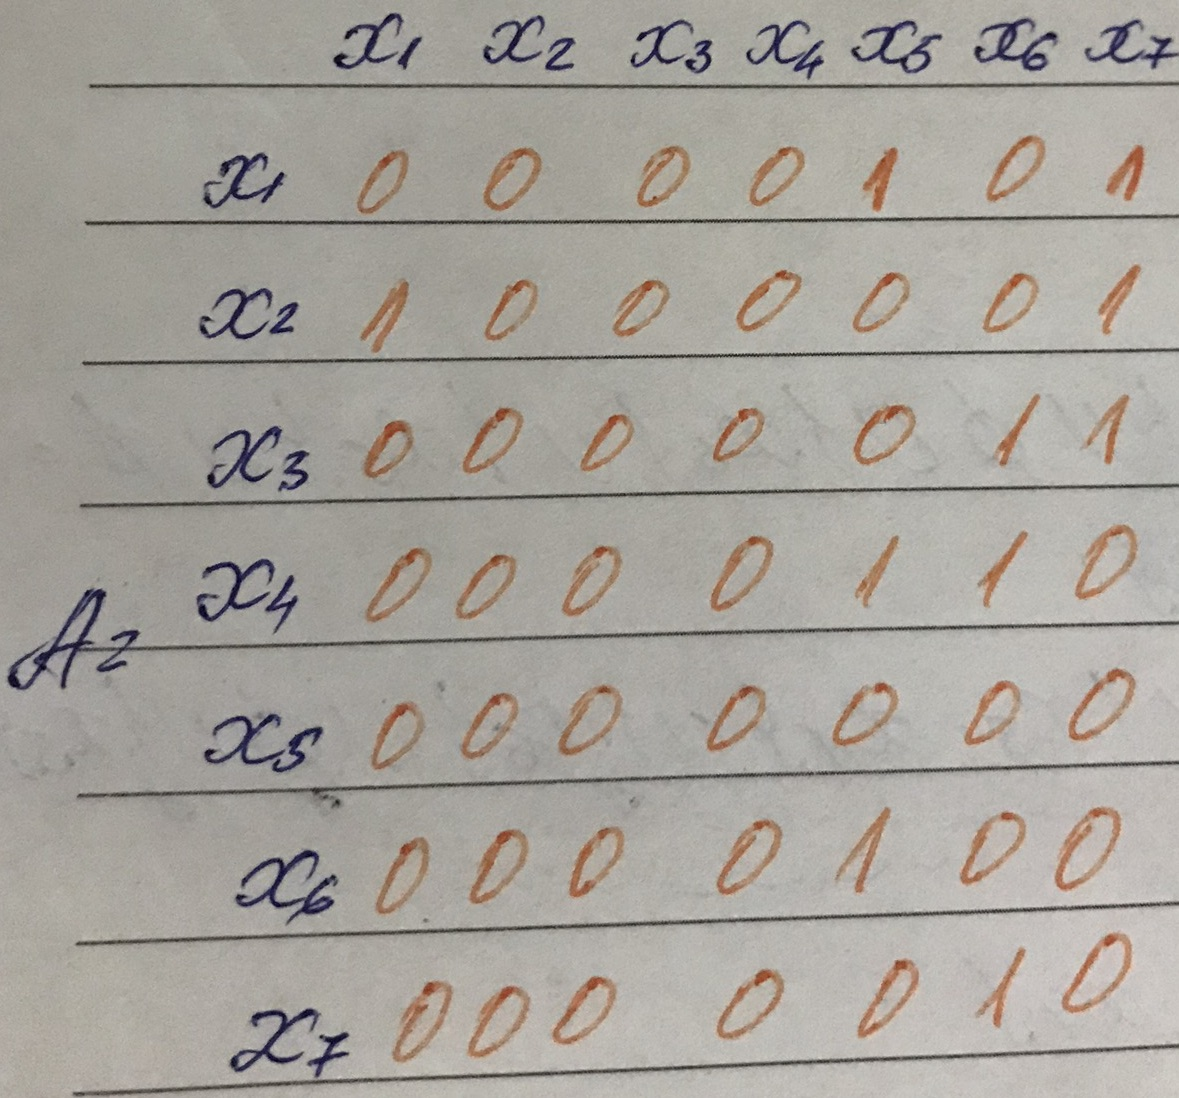 x1 x2 x3 x4 x5 x6 x7
x1 0 0 0 0 1 0 1
x2 1 0 0 0 0 0 1
x3 0 0 0 0 0 1 1
x4 0 0 0 0 1 1 0
A2
x5 0 0 0 0 0 0 0
x6 0 0 0 0 1 0 0
x7 0 0 0 0 0 1 0